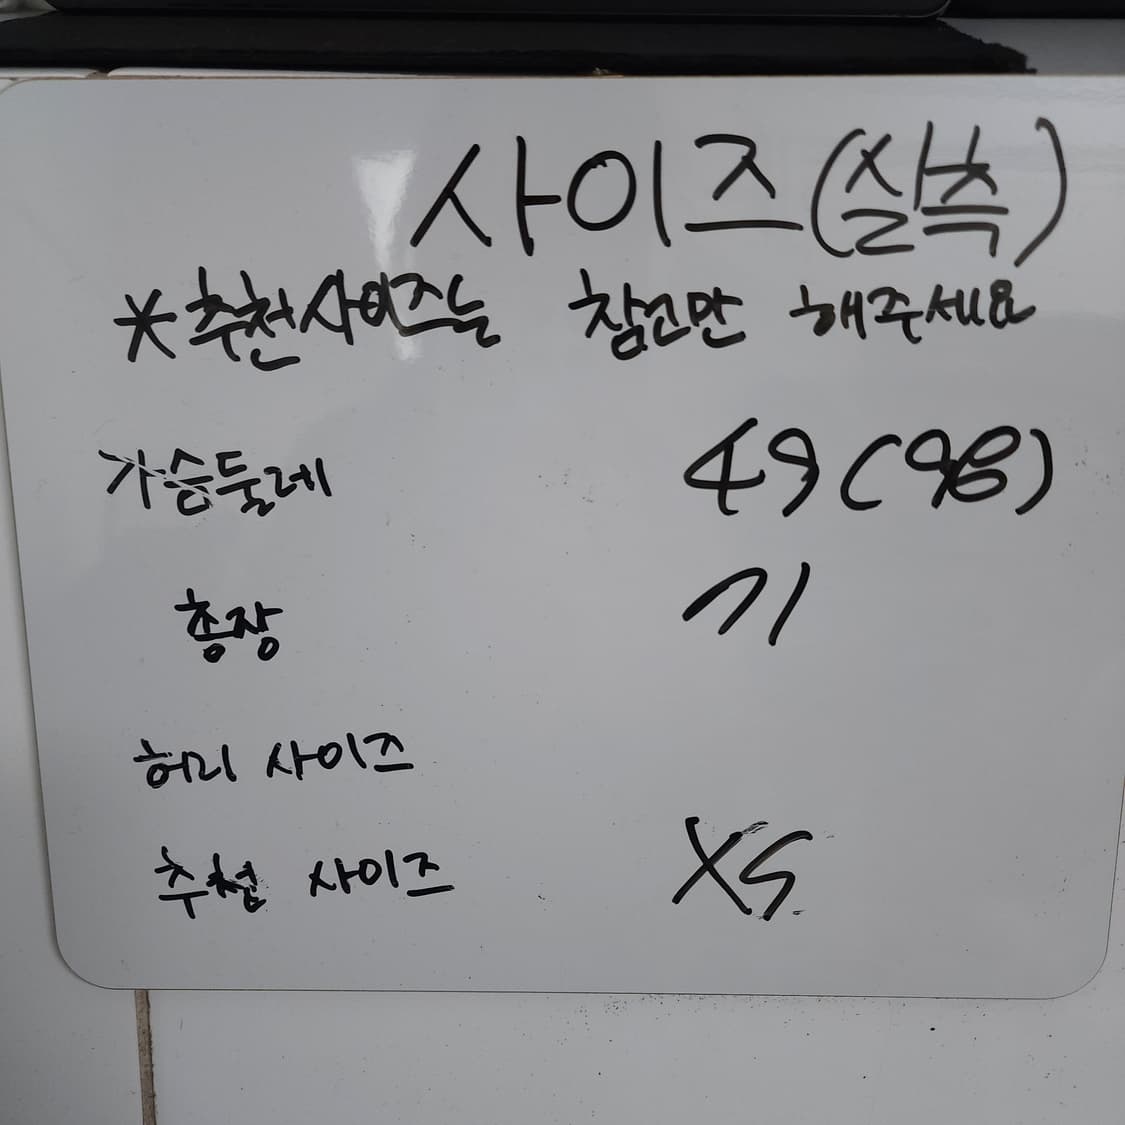 사이즈(실측)
*추천사이즈는 참고만 해주세요
가슴둘레 49(98)
총장 71
허리 사이즈
추천 사이즈 XS